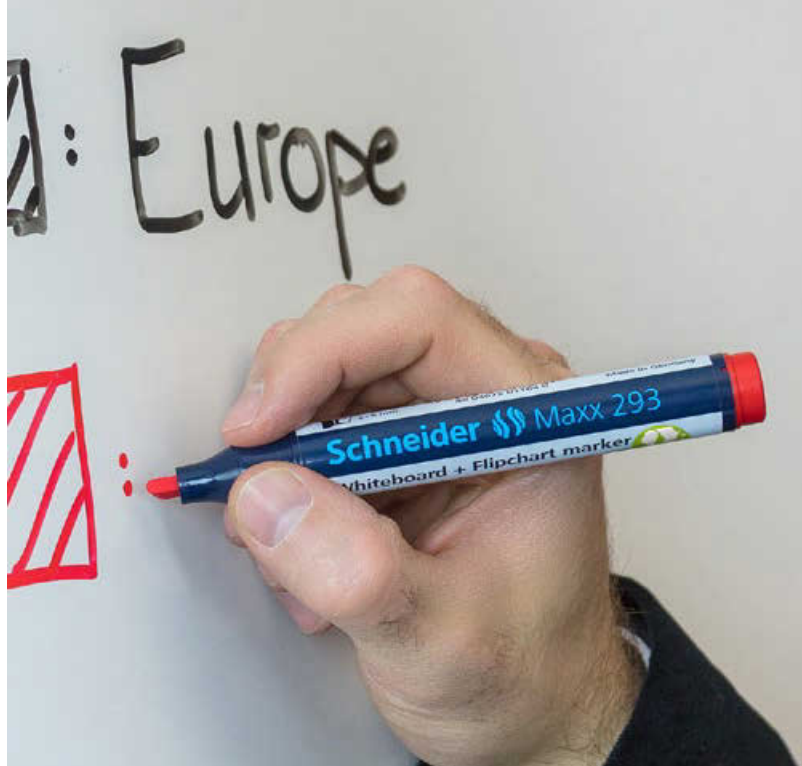 : Europe
:
Made in Germany
Schneider Maxx 293
Whiteboard + Flipchart marker